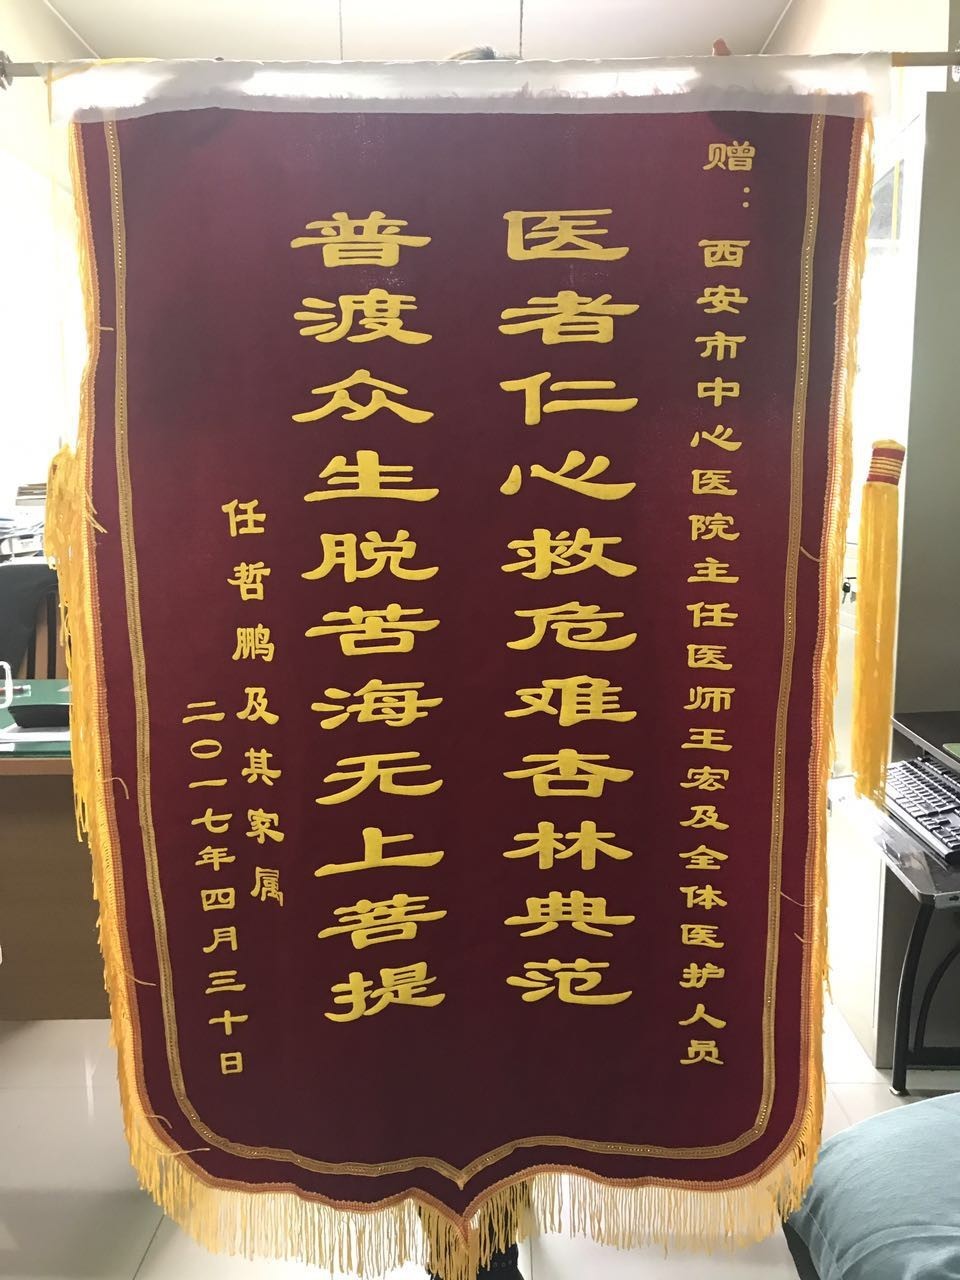 赠：西安市中心医院主任医师王宏及全体医护人员
医者仁心救危难杏林典范
普渡众生脱苦海无上菩提
任哲鹏及其家属
二〇一七年四月三十日